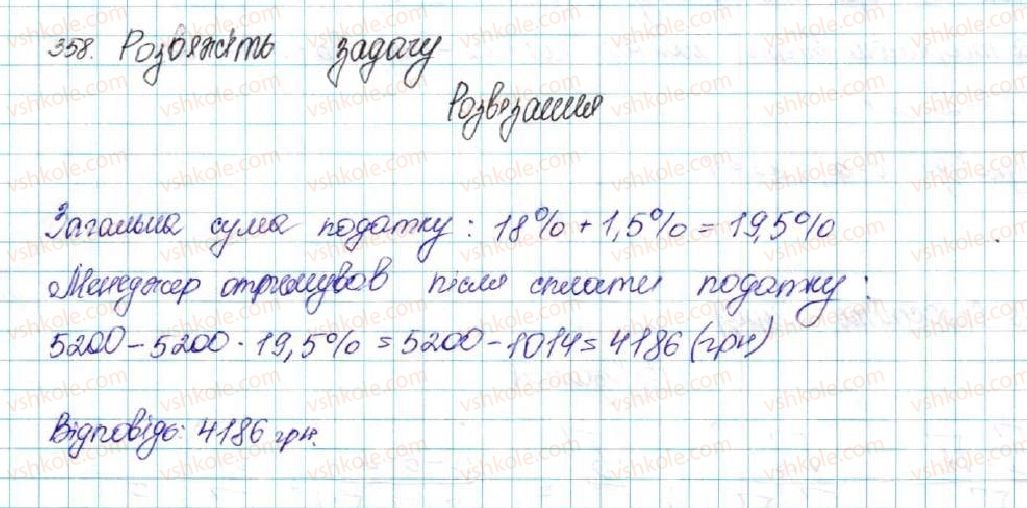 358. Розвяжіть задачу
Розвязання
Загальна сума податку: 18% + 1,5% = 19,5%
Менеджер отримував після сплати податку:
5200 - 5200 · 19,5% = 5200 - 1014 = 4186 (грн)
Відповідь: 4186 грн.